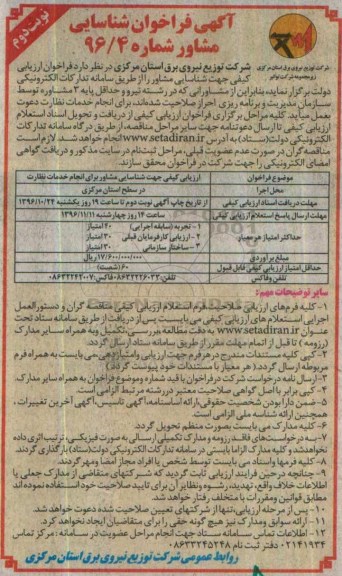 نوبت دوم
آگهی فراخوان شناسایی
مشاور شماره ۹۶/۴
شرکت توزیع نیروی برق استان مرکزی
شرکت توزیع نیروی برق استان مرکزی در نظر دارد فراخوان ارزیابی
کیفی جهت شناسایی مشاور را از طریق سامانه تدارکات الکترونیکی
دولت برگزار نماید، بنابراین از مشاورانی که در رشته نیرو و حداقل پایه ۳ مشاوره توسط
سازمان مدیریت و برنامه ریزی احراز صلاحیت شده‌اند، برای انجام خدمات نظارت دعوت
بعمل میآید. کلیه مراحل برگزاری فراخوان ارزیابی کیفی از دریافت و تحویل اسناد استعلام
ارزیابی کیفی تا ارسال دعوتنامه جهت سایر مراحل مناقصه، از طریق درگاه سامانه تدارکات
الکترونیکی دولت (ستاد) به آدرس www.setadiran.ir انجام خواهد شد. لازم است
مناقصه گران در صورت عدم عضویت قبلی، مراحل ثبت نام در سایت مذکور و دریافت گواهی
امضای الکترونیکی را جهت شرکت در فراخوان محقق سازند.
موضوع فراخوان	ارزیابی کیفی جهت شناسایی مشاور برای انجام خدمات نظارت
محل اجرا	در سطح استان مرکزی
مهلت دریافت اسناد ارزیابی کیفی	از تاریخ چاپ آگهی نوبت دوم تا ساعت ۱۹ روز یکشنبه ۱۳۹۶/۱۰/۲۴
مهلت ارسال پاسخ استعلام ارزیابی کیفی	ساعت ۱۴ روز چهارشنبه ۱۳۹۶/۱۱/۱۱
حداکثر امتیاز هر معیار	۱- تجربه (سابقه اجرایی) ۴۰ امتیاز
۲- ارزیابی کارفرمایان قبلی ۳۰ امتیاز
۳- ساختار سازمانی ۳۰ امتیاز
مبلغ برآوردی
حداقل امتیاز ارزیابی کیفی قابل قبول	۶۰ (شصت)
تلفن وفاکس
سایر توضیحات مهم:
۱- کلیه فرم‌های ارزیابی صلاحیت، فرم استعلام ارزیابی کیفی مناقصه گران و دستورالعمل
اجرایی استعلام های ارزیابی کیفی می بایست پس از دریافت از طریق سامانه ستاد تحت
عنوان www.setadiran.ir به دقت مطالعه، بررسی، تکمیل و به همراه سایر مدارک
(رزومه) تا قبل از اتمام مهلت مقرر از طریق سامانه ستاد ارسال گردد.
۲- کپی کلیه مستندات مندرج در هر فرم جهت ارزیابی و امتیازدهی، می بایست به همراه فرم
مربوطه ارسال گردد. (هر معیار با مستندات خود پیوست گردد)
۳- ارسال نامه درخواست شرکت در فراخوان با قید شماره و موضوع فراخوان به همراه سایر مدارک.
۴- کپی برابر با اصل گواهی صلاحیت معتبر در رشته مرتبط الزامی است.
۵- ضمن دارا بودن شخصیت حقوقی، ارائه اساسنامه، آگهی تاسیس، آگهی آخرین تغییرات،
همچنین ارائه شناسه ملی الزامی است.
۶- کلیه مدارک می بایست بصورت منظم تحویل گردد.
۷- به درخواست‌های فاقد رزومه و مدارک تکمیلی ارسالی به صورت فیزیکی، ترتیب اثری داده
نخواهد شد و کلیه مدارک الزاماً بایستی در سامانه تدارکات الکترونیکی دولت (ستاد) بارگذاری گردند.
۸- کلیه فرمها و اسناد می بایست توسط شخص یا افراد مجاز امضا و مهر گردند.
۹- چنانچه در حین فرایند ارزیابی ثابت گردید که شرکتهای متقاضی از مدارک جعلی یا
اطلاعات خلاف واقع، تهدید، رشوه و نظایر آن برای تایید صلاحیت خود استفاده نموده‌اند
مطابق قوانین و مقررات با متخلف رفتار خواهد شد.
۱۰- پس از مرحله ارزیابی، تنها از شرکتهای تعیین صلاحیت شده دعوت خواهد شد.
۱۱- ارائه سوابق و مدارک نیز هیچ گونه حقی را برای متقاضیان ایجاد نخواهد کرد.
۱۲- اطلاعات تماس سامانه ستاد جهت انجام مراحل عضویت در سامانه: مرکز تماس
۰۲۱۴۱۹۳۴ دفتر ثبت نام ۰۸۶۳۳۲۴۵۲۴۸
روابط عمومی شرکت توزیع نیروی برق استان مرکزی